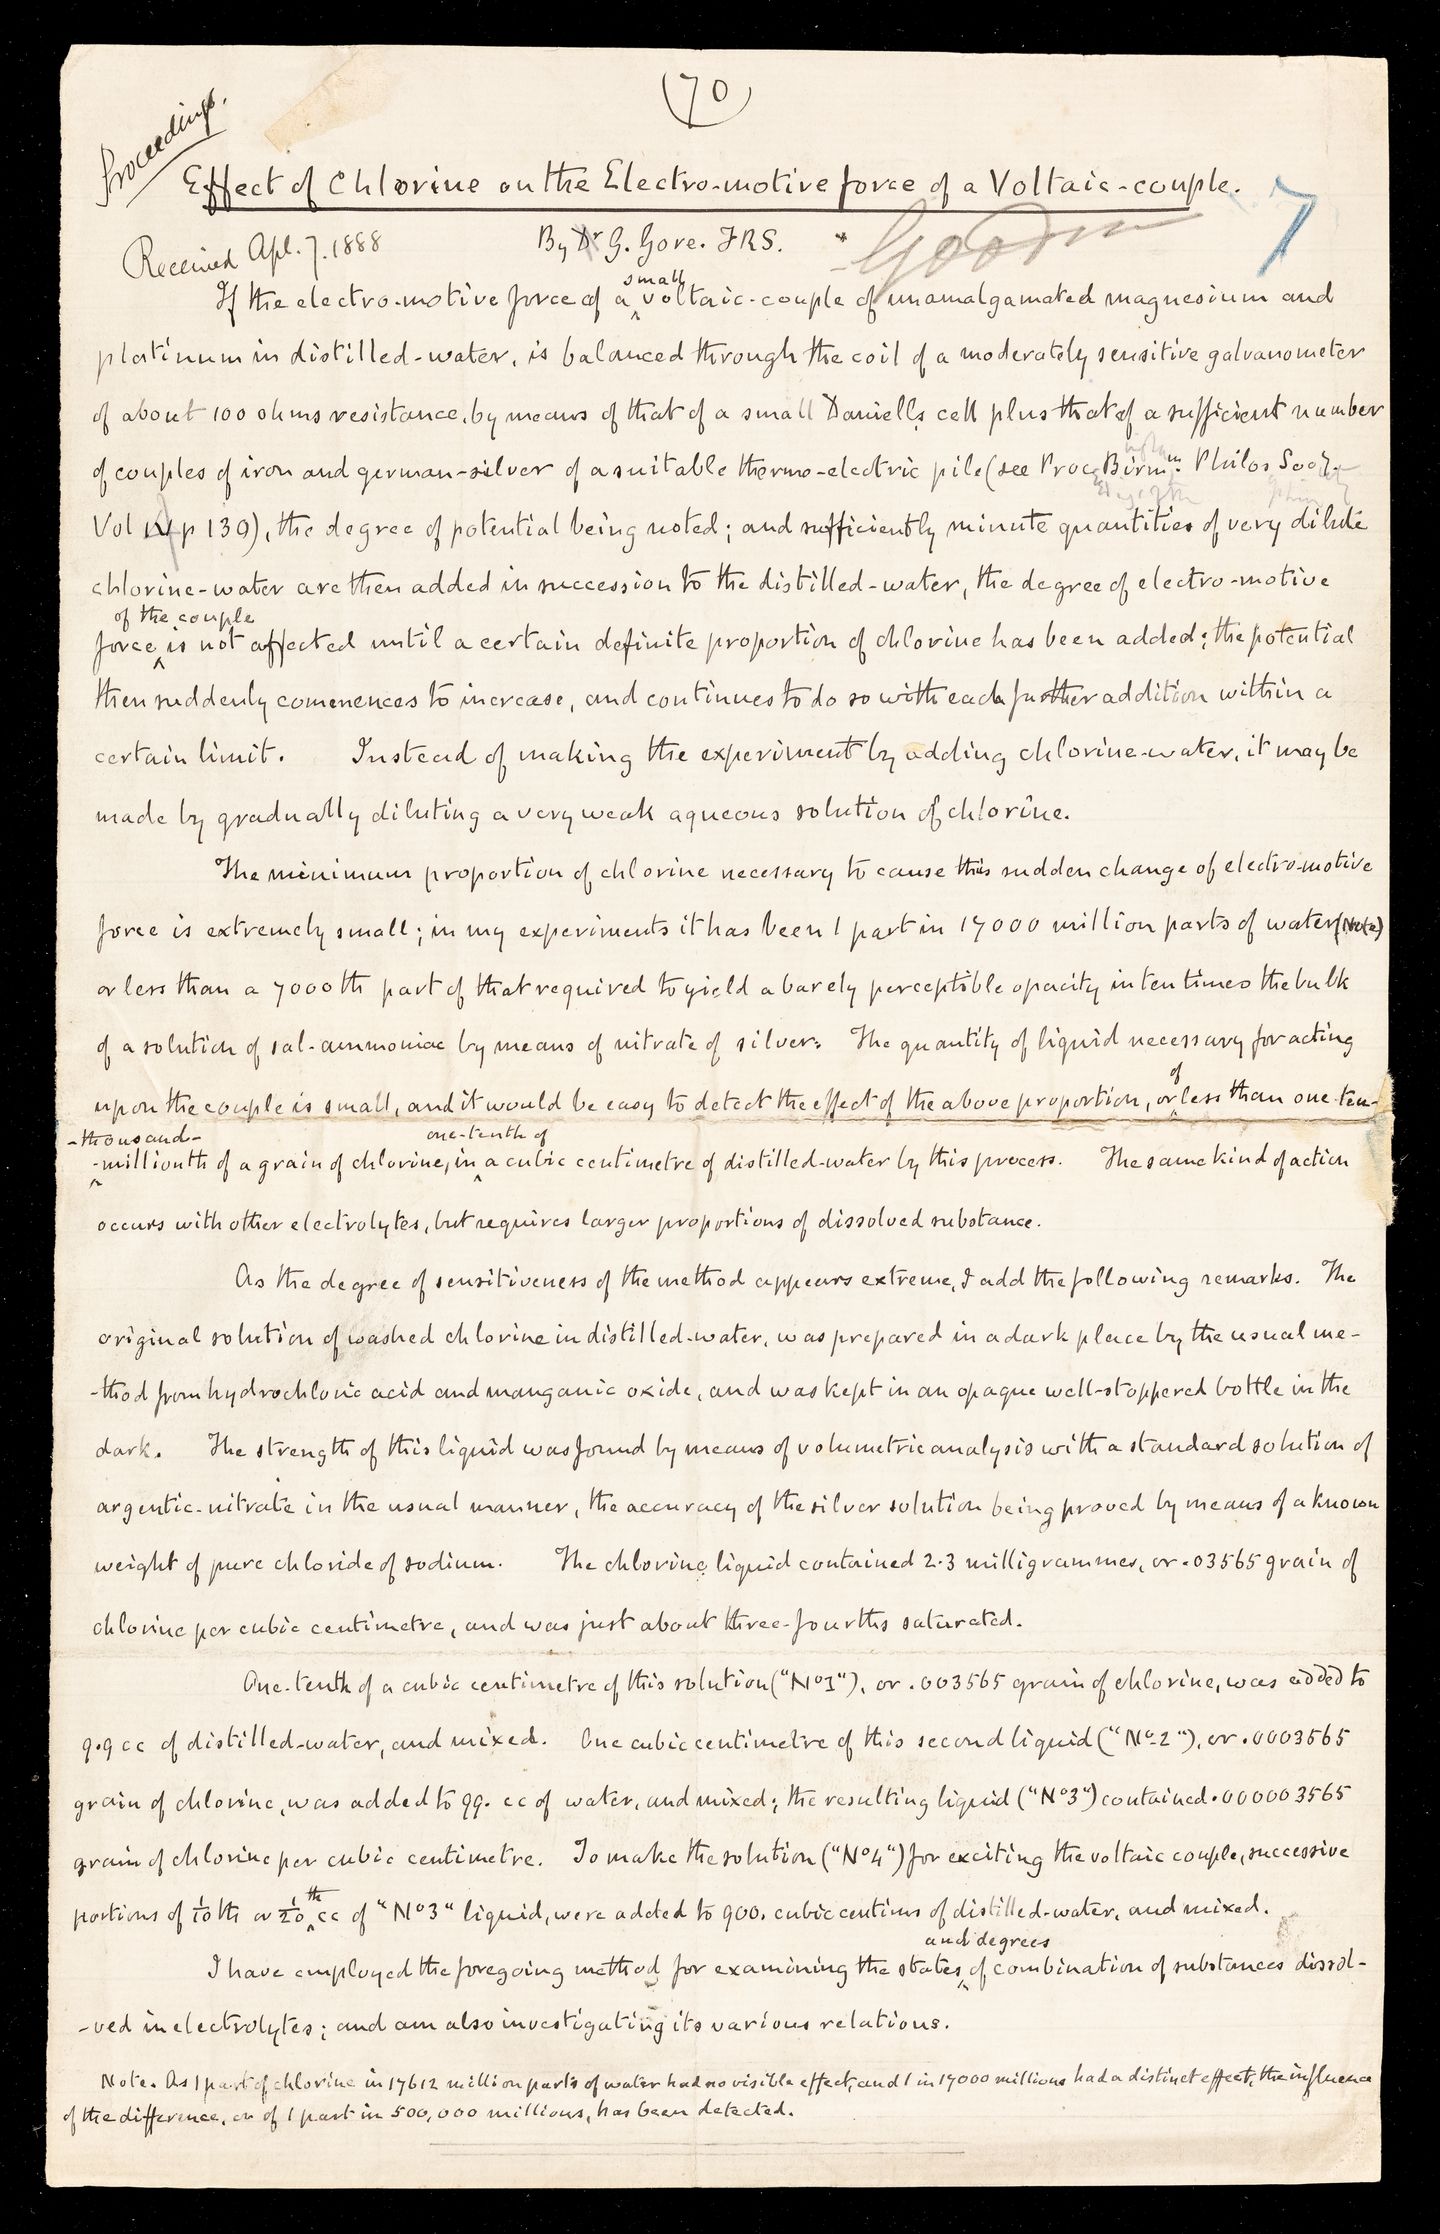 (70)
Proceedings.
Effect of Chlorine on the Electro-motive force of a Voltaic-couple.
7
Received Apl. 7. 1888
By Dr G. Gore. F.R.S.
small
If the electro-motive force of a voltaic-couple of unamalgamated magnesium and
platinum in distilled-water, is balanced through the coil of a moderately sensitive galvanometer
of about 100 ohms resistance, by means of that of a small Daniells cell plus that of a sufficient number
of couples of iron and german-silver of a suitable thermo-electric pile (see Proc. Birmm. Philos Socy.
Vol IV p 130), the degree of potential being noted; and sufficiently minute quantities of very dilute
chlorine-water are then added in succession to the distilled-water, the degree of electro-motive
of the couple
force is not affected until a certain definite proportion of chlorine has been added; the potential
then suddenly commences to increase, and continues to do so with each further addition within a
certain limit. Instead of making the experiment by adding chlorine-water, it may be
made by gradually diluting a very weak aqueous solution of chlorine.
The minimum proportion of chlorine necessary to cause this sudden change of electro-motive
force is extremely small; in my experiments it has been 1 part in 17000 million parts of water (Note)
or less than a 7000th part of that required to yield a barely perceptible opacity in ten times the bulk
of a solution of sal-ammoniac by means of nitrate of silver. The quantity of liquid necessary for acting
of
upon the couple is small, and it would be easy to detect the effect of the above proportion, or less than one-ten-
-thousand- one-tenth of
-millionth of a grain of chlorine, in a cubic centimetre of distilled-water by this process. The same kind of action
occurs with other electrolytes, but requires larger proportions of dissolved substance.
As the degree of sensitiveness of the method appears extreme, I add the following remarks. The
original solution of washed chlorine in distilled-water, was prepared in a dark place by the usual me-
-thod from hydrochloric acid and manganic oxide, and was kept in an opaque well-stoppered bottle in the
dark. The strength of this liquid was found by means of volumetric analysis with a standard solution of
argentic-nitrate in the usual manner, the accuracy of the silver solution being proved by means of a known
weight of pure chloride of sodium. The chlorine liquid contained 2.3 milligrammes, or .03565 grain of
chlorine per cubic centimetre, and was just about three-fourths saturated.
One-tenth of a cubic centimetre of this solution ("No 1"), or .003565 grain of chlorine, was added to
9.9 cc of distilled-water, and mixed. One cubic centimetre of this second liquid ("No 2"), or .0003565
grain of chlorine, was added to 99. cc of water, and mixed; the resulting liquid ("No 3") contained .000003565
grain of chlorine per cubic centimetre. To make the solution ("No 4") for exciting the voltaic couple, successive
portions of 1/10 th or 1/20 th cc of "No 3" liquid, were added to 900. cubic centims of distilled-water, and mixed.
and degrees
I have employed the foregoing method for examining the states of combination of substances dissol-
-ved in electrolytes; and am also investigating its various relations.
Note. As 1 part of chlorine in 17612 million parts of water had no visible effect, and 1 in 17000 millions had a distinct effect, the influence
of the difference, or of 1 part in 500,000 millions, has been detected.